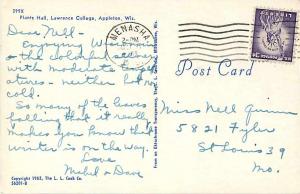 DY9X
Plantz Hall, Lawrence College, Appleton, Wis.
Dear Nell-
Enjoying Wisconsin
& the colorful
with moderate temper-
atures - neither hot nor
cold.
So many of the leaves
falling that it really
makes you know that
winter is on the way.
Love
Mabel & Dave
Copyright 1962, The L. L. Cook Co.
MENASHA
PM
Post Card
Miss Nell Quinn
5821 Tyler
St Louis 39
Mo.